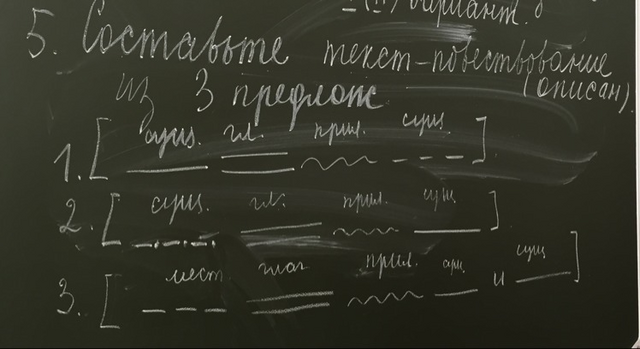 (п) вариант. б
5. Составьте текст-повествование
(описан)
из 3 предлож
1. [ сущ. гл. прил. сущ. ].
2. [ сущ. гл. прил. сущ ].
3. [ мест. глаг прил. сущ и сущ ]